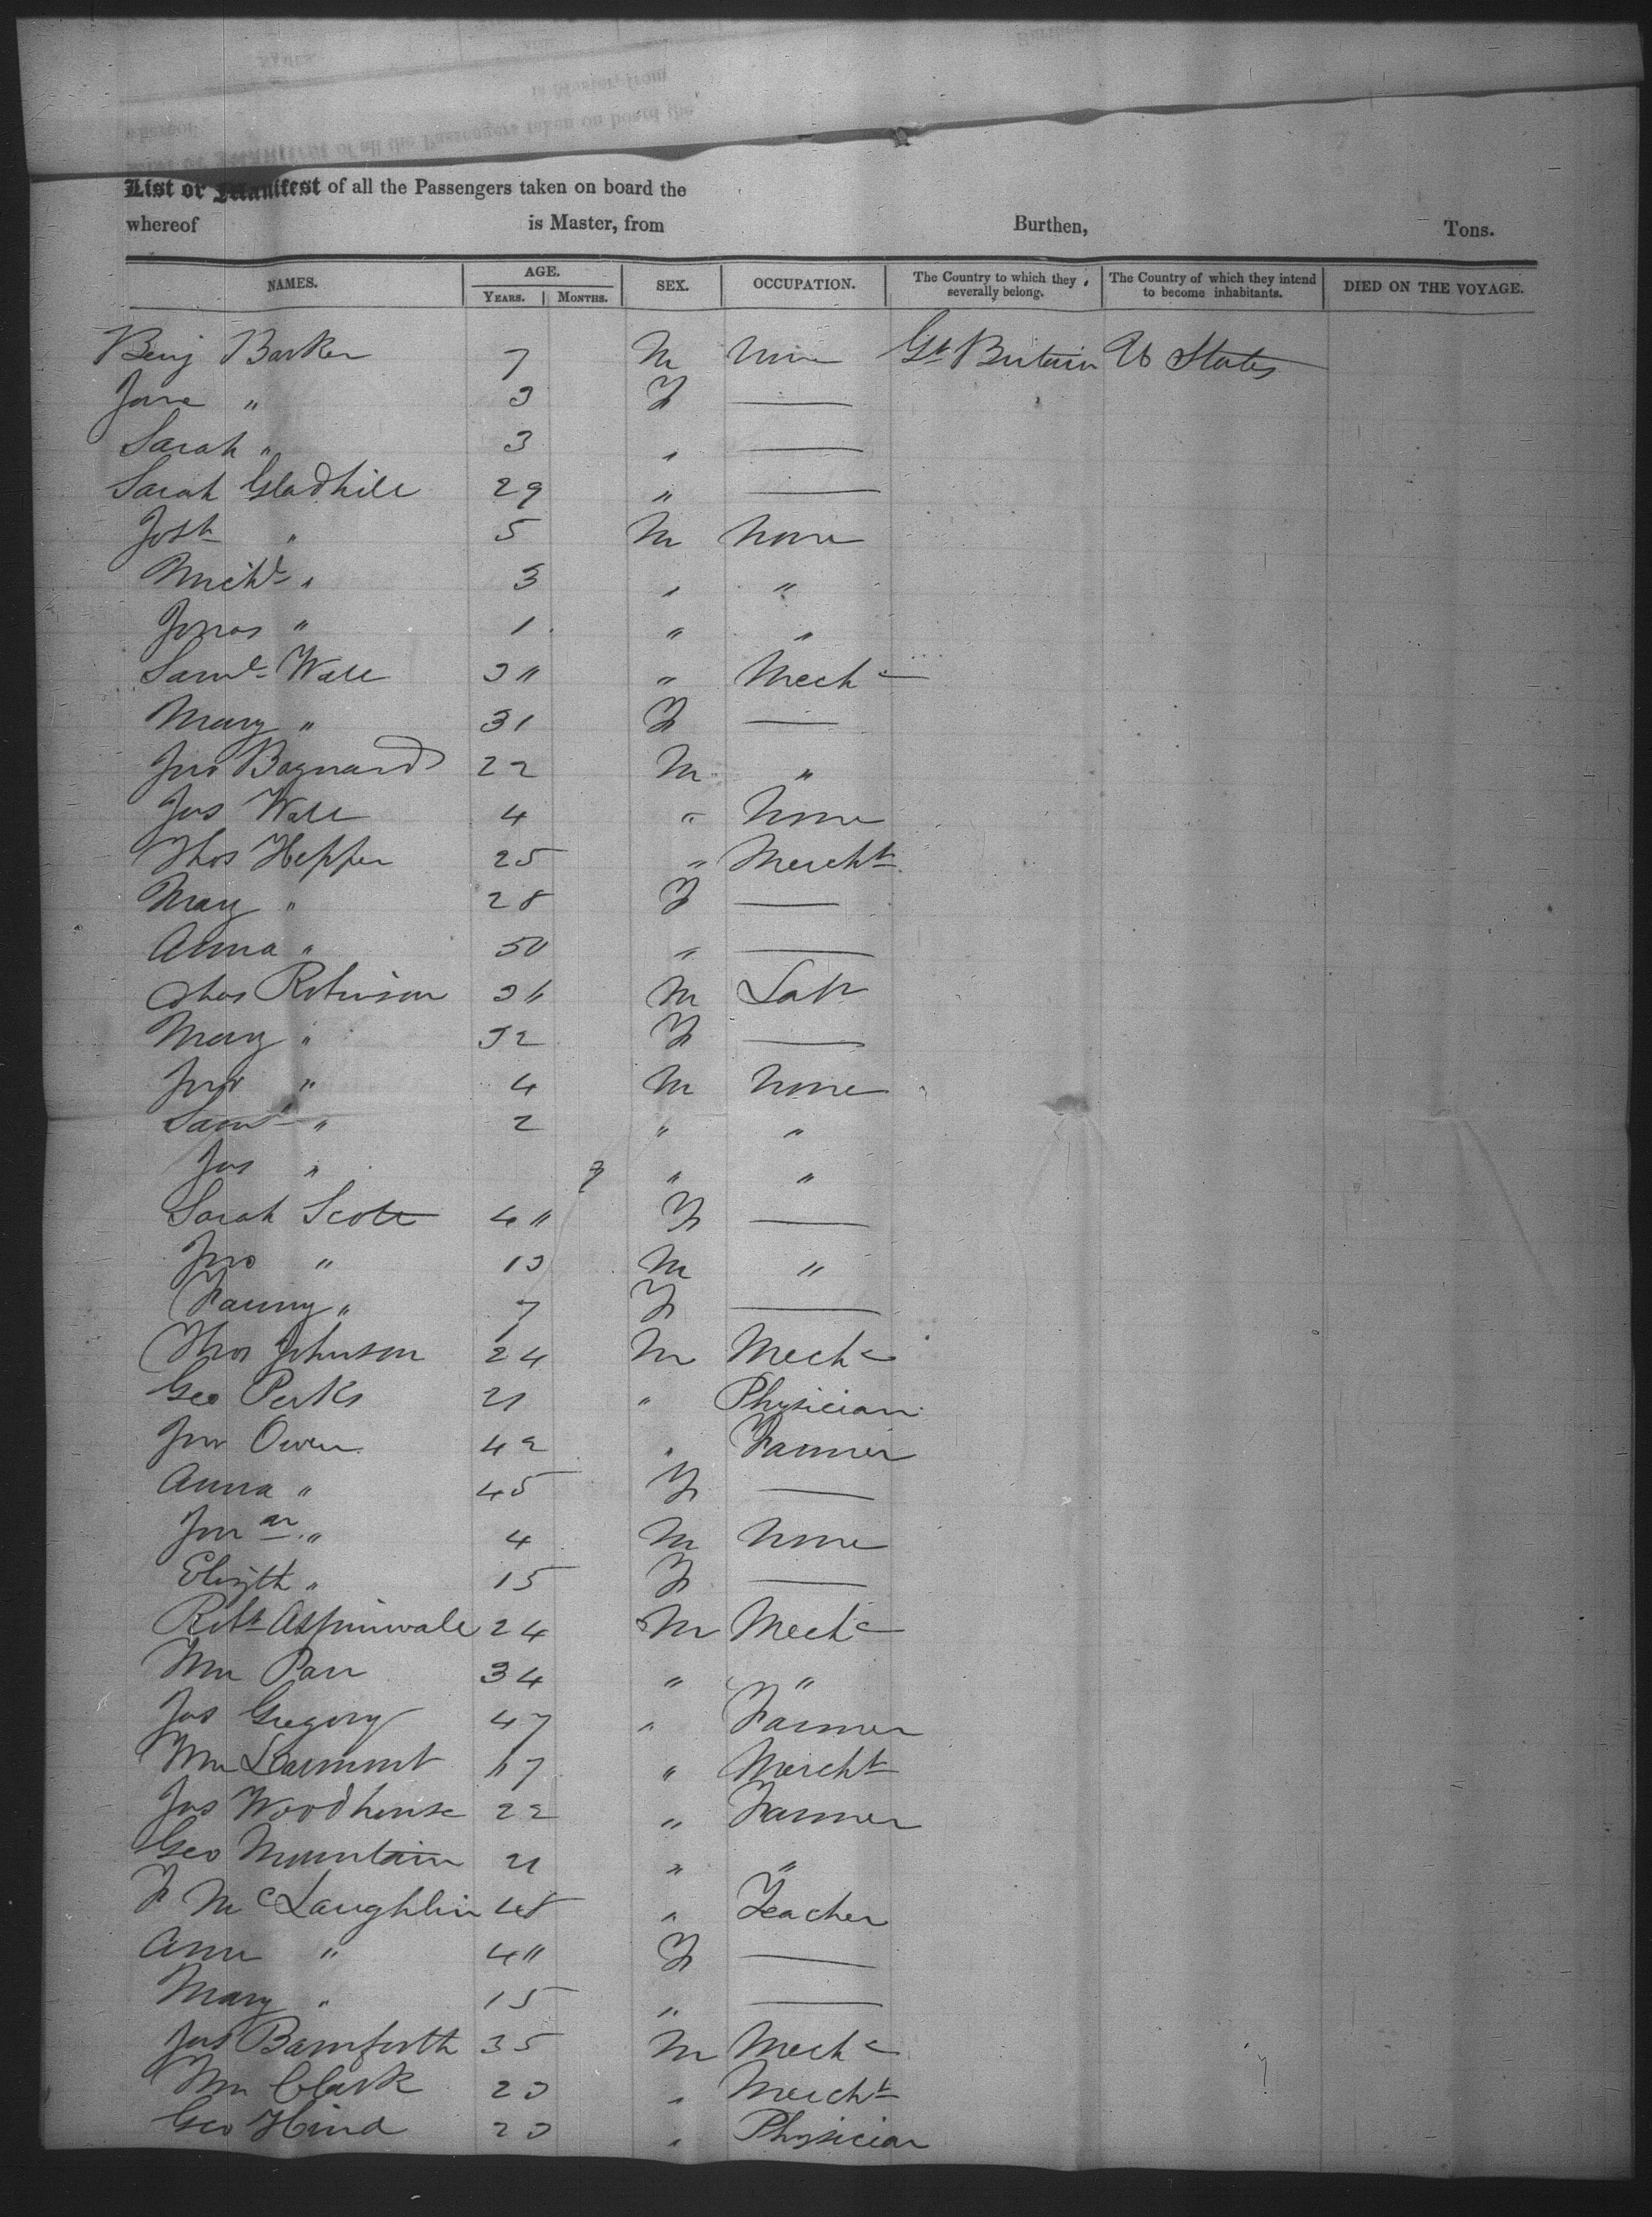 List or Manifest of all the Passengers taken on board the
whereof is Master, from Burthen, Tons.
NAMES. AGE. YEARS. MONTHS. SEX. OCCUPATION. The Country to which they severally belong. The Country of which they intend to become inhabitants. DIED ON THE VOYAGE.
Benj Barker 7 M None Gt Britain U States
Jane " 3 F —
Sarah " 3 " —
Sarah Gladhill 29 " —
Josh " 5 M None
Michl " 3 " "
Jonas " 1 " "
Saml Wall 3" " Mechc
Mary " 31 F —
Jno Bagnard 22 M "
Jos Wall 4 " None
Thos Hepper 25 " Mercht
Mary " 28 F —
Anna " 50 " —
Robinson 36 M Labr
Mary " 32 F —
Jno " 4 M None
Saml " 2 " "
Jos " 7 " "
Sarah Scott 4" F —
Jno " 13 M "
Fanny " 7 F —
Thos Johnson 24 M Mechc
Geo Perks 21 " Physician
Jno Owen 42 " Farmer
Anna " 45 F —
Jno " 4 M None
Elizth " 15 F —
Robt Aspinwale 24 M Mechc
Wm Parr 34 " "
Jas Gregory 47 " Farmer
Wm 67 " Mercht
Jas Woodhouse 22 " Farmer
Geo Mountain 21 " "
F McLaughlin 48 " Teacher
Ann " 4" F —
Mary " 15 " —
Jas Bamforth 35 M Mechc
Wm Clark 23 " Mercht
Geo Hind 23 " Physician